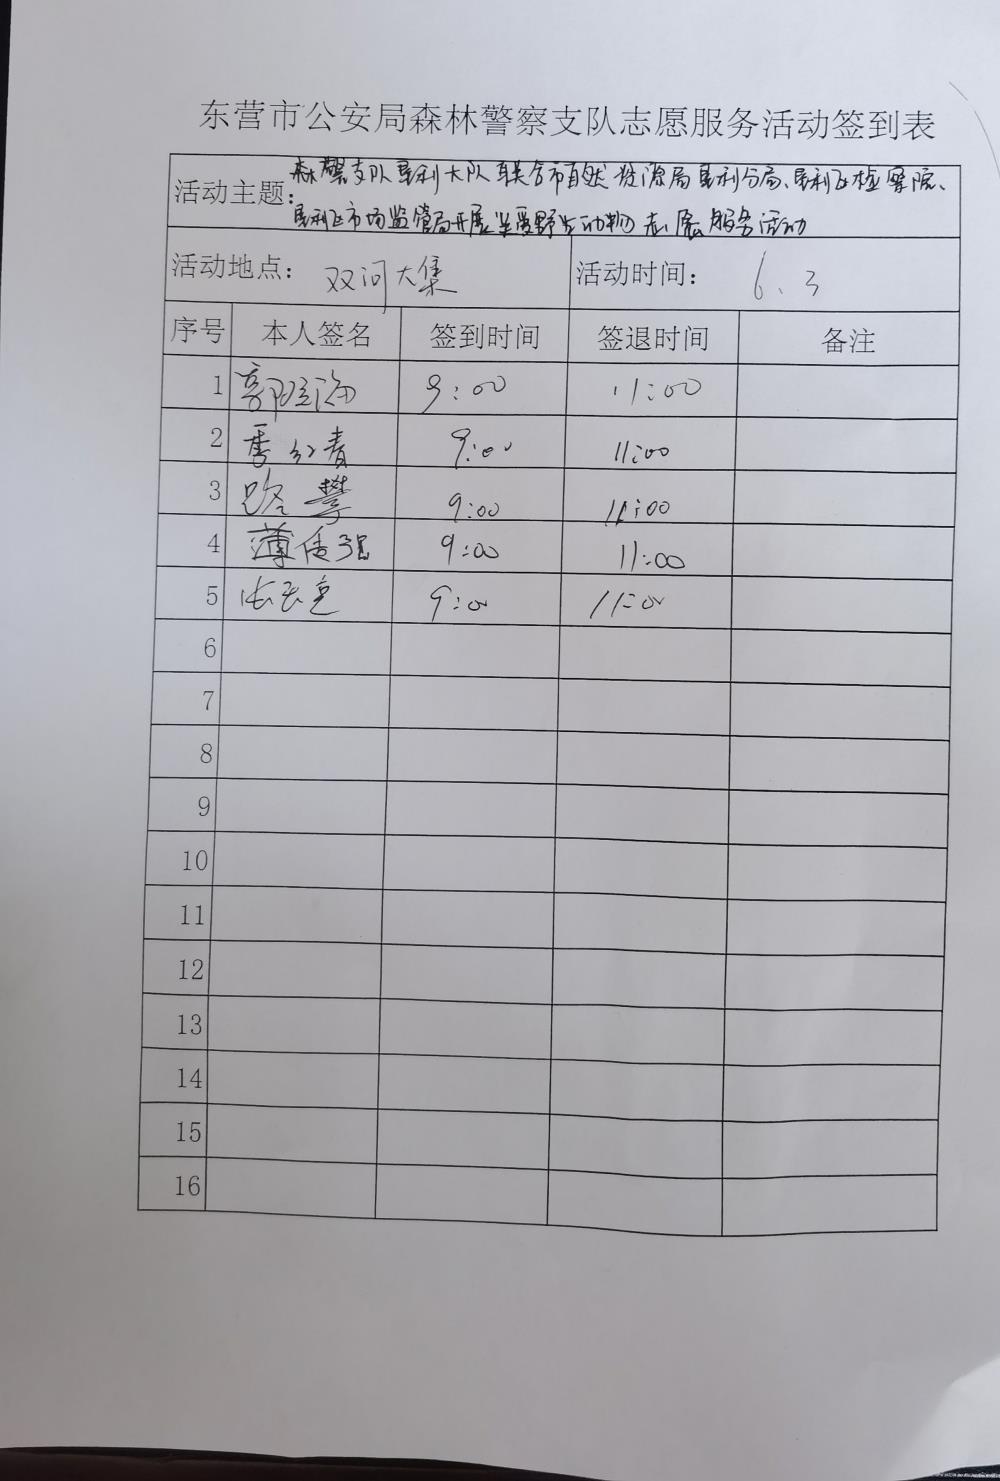 东营市公安局森林警察支队志愿服务活动签到表
活动主题：森警支队垦利大队联合市自然资源局垦利分局、垦利区检察院、
垦利区市场监管局开展关爱野生动物志愿服务活动
活动地点： 双河大集 活动时间： 6.3
序号 本人签名 签到时间 签退时间 备注
1 9:00 11:00
2 季红青 9:00 11:00
3 路攀 9:00 11:00
4 薄传强 9:00 11:00
5 9:00 11:00
6
7
8
9
10
11
12
13
14
15
16